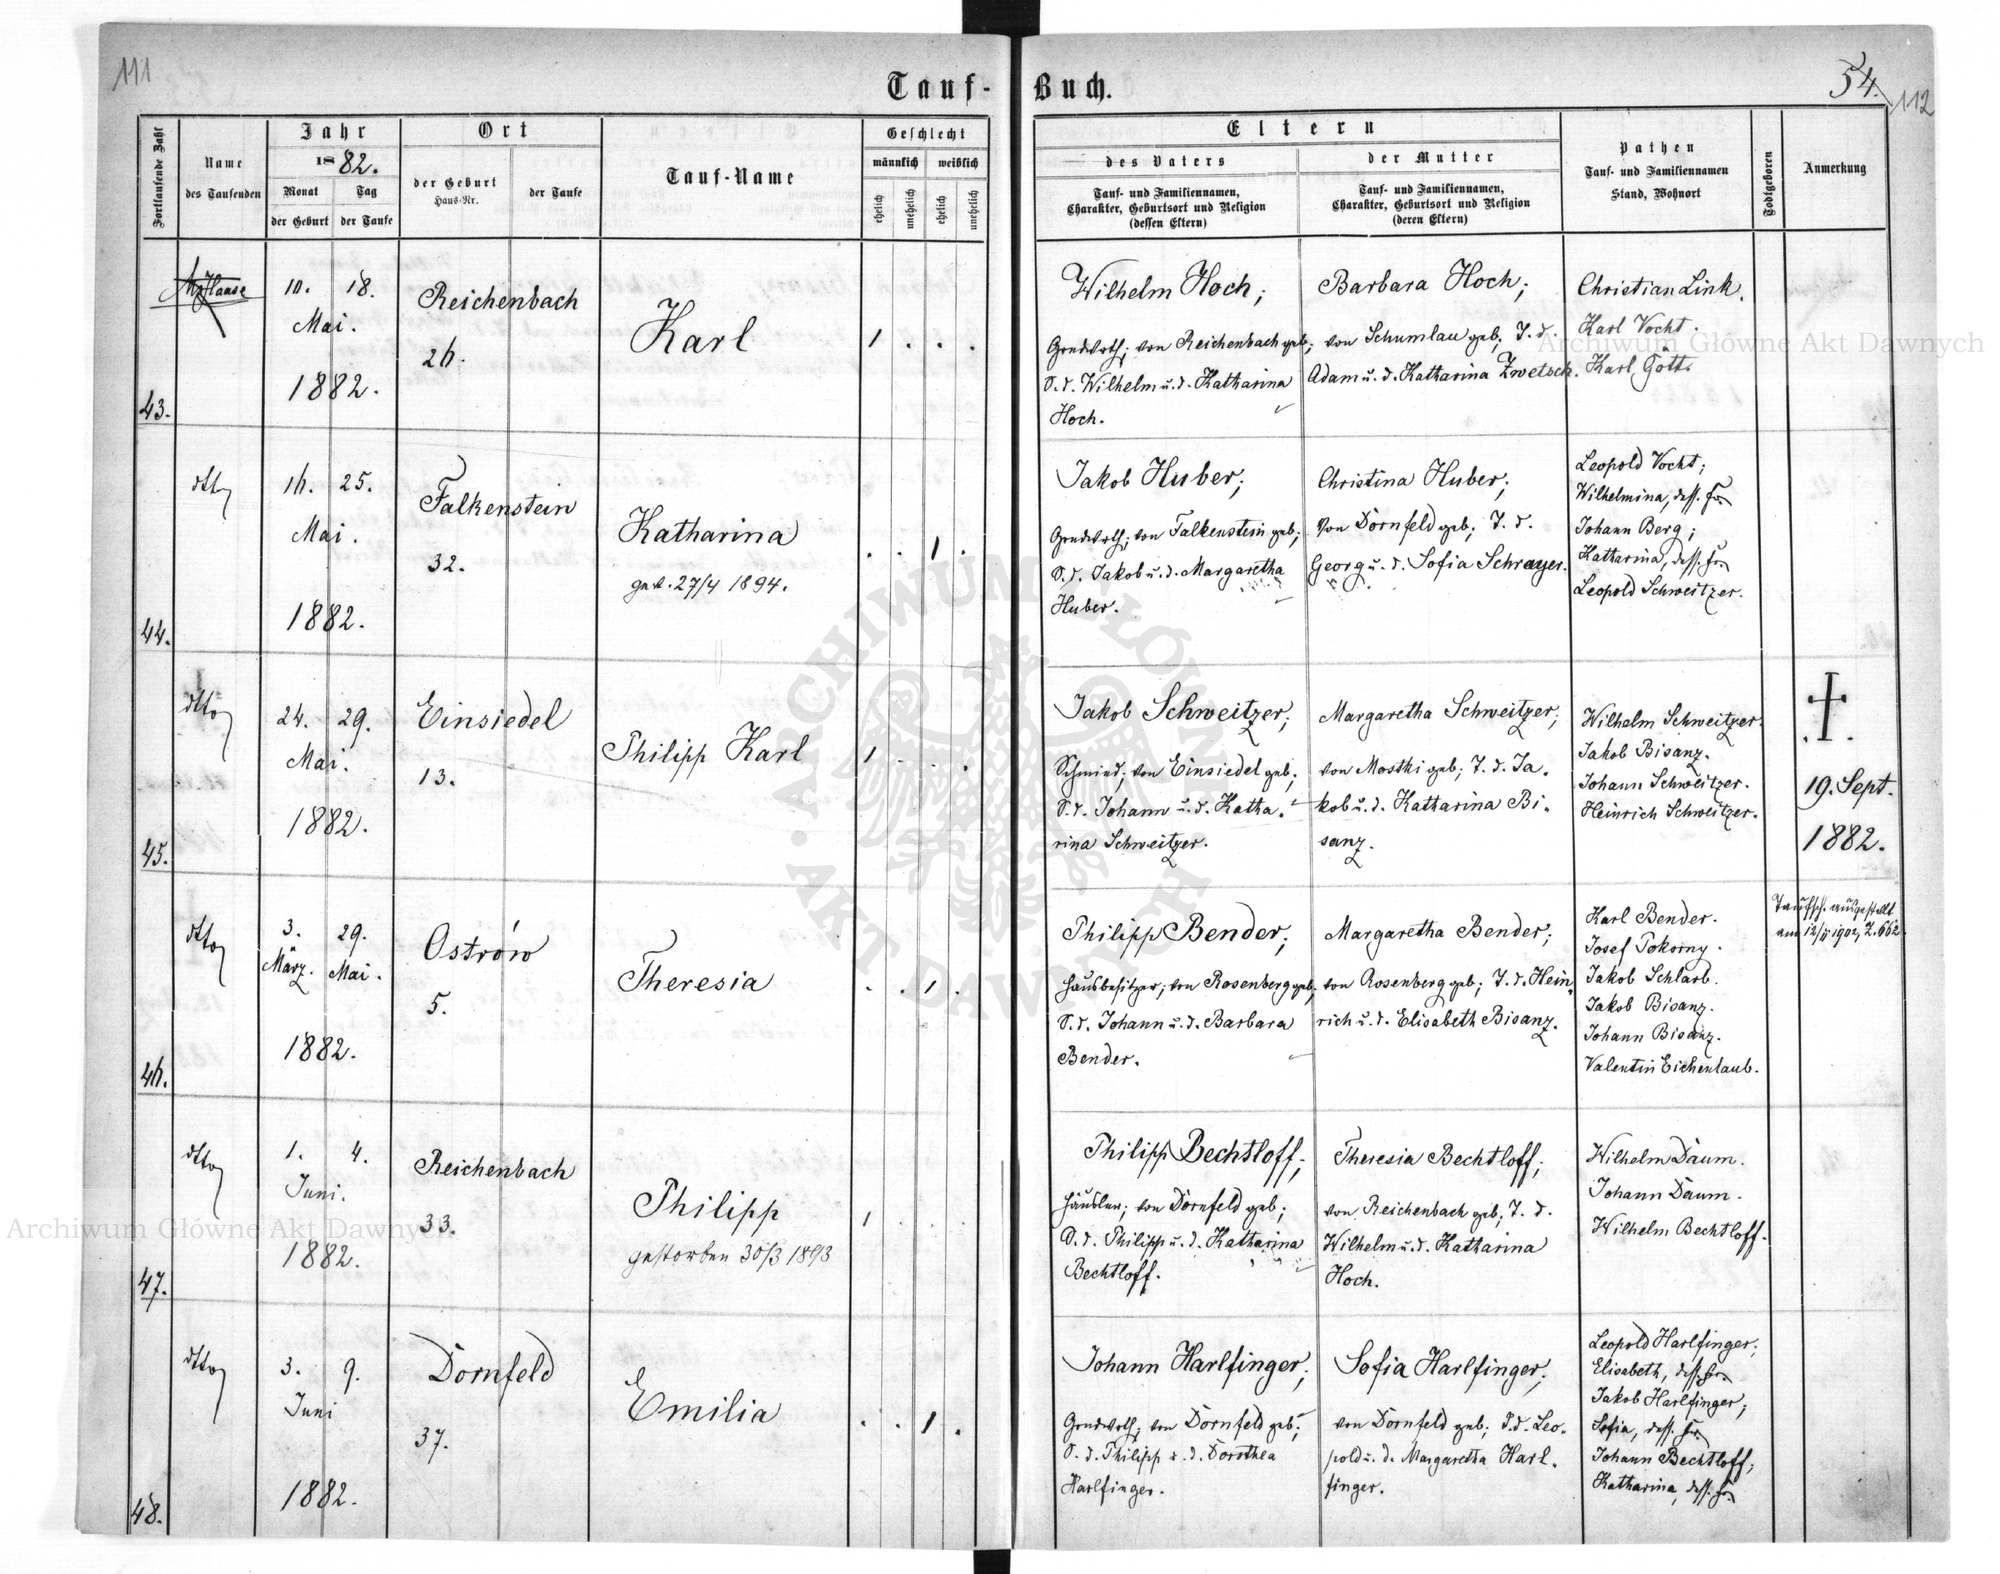 111
Tauf-Buch.
54.
112
Fortlaufende Zahl
Name
des Taufenden
Jahr
1882.
Monat
Tag
der Geburt
der Taufe
Ort
der Geburt
Haus-Nr.
der Taufe
Tauf-Name
Geschlecht
männlich
weiblich
ehelich
unehelich
ehelich
unehelich
Eltern
des Vaters
Tauf- und Familiennamen,
Charakter, Geburtsort und Religion
(dessen Eltern)
der Mutter
Tauf- und Familiennamen,
Charakter, Geburtsort und Religion
(deren Eltern)
Pathen
Tauf- und Familiennamen
Stand, Wohnort
Todtgeboren
Anmerkung
43.
10. 18.
Mai.
1882.
Reichenbach
26.
Karl
1 . . .
Wilhelm Hoch;
Grndwrth; von Reichenbach geb;
S. d. Wilhelm u. d. Katharina
Hoch.
Barbara Hoch;
von Schumlau geb; T. d.
Adam u. d. Katharina Zwetsch.
Christian Link.
Karl Vocht.
Karl Gött.
44.
dtto
16. 25.
Mai.
1882.
Falkenstein
32.
Katharina
gest. 27/4 1894.
. . 1 .
Jakob Huber;
Grndwrth; von Falkenstein geb;
S. d. Jakob u. d. Margaretha
Huber.
Christina Huber;
von Dornfeld geb; T. d.
Georg u. d. Sofia Schrayer.
Leopold Vocht;
Wilhelmina, dess. Fr.
Johann Berg;
Katharina, dess. Fr.
Leopold Schweitzer.
45.
dtto
24. 29.
Mai.
1882.
Einsiedel
13.
Philipp Karl
1 . . .
Jakob Schweitzer;
Schmied; von Einsiedel geb;
S. d. Johann u. d. Katha.
rina Schweitzer.
Margaretha Schweitzer;
von Mostki geb; T. d. Ja.
kob u. d. Katharina Bi.
sanz.
Wilhelm Schweitzer.
Jakob Bisanz.
Johann Schweitzer.
Heinrich Schweitzer.
.†.
19. Sept.
1882.
46.
dtto
3. 29.
März. Mai.
1882.
Ostrów
5.
Theresia
. . 1 .
Philipp Bender;
Hausbesitzer; von Rosenberg geb;
S. d. Johann u. d. Barbara
Bender.
Margaretha Bender;
von Rosenberg geb; T. d. Hein
rich u. d. Elisabeth Bisanz.
Karl Bender.
Josef Pokorny.
Jakob Schlarb.
Jakob Bisanz.
Johann Bisanz.
Valentin Eichenlaub.
Taufsch. ausgestellt
am 12/II 1902, Z. 662
47.
dtto
1. 4.
Juni.
1882.
Reichenbach
33.
Philipp
gestorben 30/3 1893
1 . . .
Philipp Bechtloff;
Häusler; von Dornfeld geb;
S. d. Philipp u. d. Katharina
Bechtloff.
Theresia Bechtloff;
von Reichenbach geb; T. d.
Wilhelm u. d. Katharina
Hoch.
Wilhelm Daum.
Johann Daum.
Wilhelm Bechtloff.
48.
dtto
3. 9.
Juni
1882.
Dornfeld
37.
Emilia
. . 1 .
Johann Harlfinger;
Grndwrth; von Dornfeld geb;
S. d. Philipp u. d. Dorothea
Harlfinger.
Sofia Harlfinger;
von Dornfeld geb; T. d. Leo.
pold u. d. Margaretha Harl.
finger.
Leopold Harlfinger;
Elisabeth, dess. Fr.
Jakob Harlfinger;
Sofia, dess. Fr.
Johann Bechtloff;
Katharina, dess. Fr.
Archiwum Główne Akt Dawnych
Archiwum Główne Akt Dawnych
ARCHIWUM GŁÓWNE AKT DAWNYCH